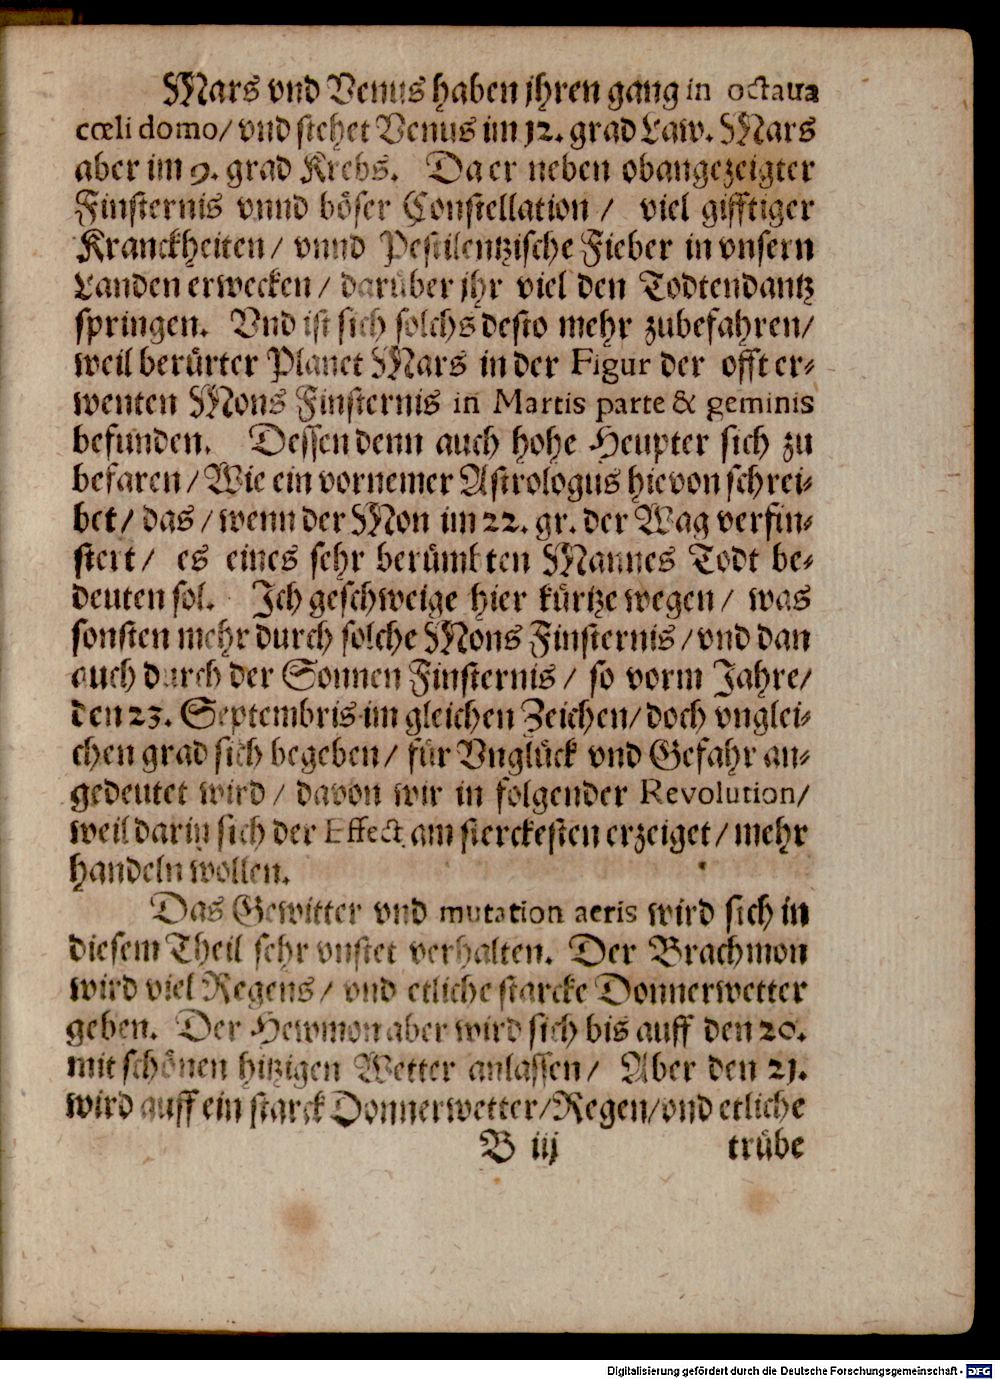 Mars vnd Venus haben jhren gang in octaua
cœli domo/ vnd stehet Venus im 12. grad Law. Mars
aber im 9. grad Krebs. Da er neben obangezeigter
Finsternis vnnd böser Constellation / viel gifftiger
Kranckheiten / vnnd Pestilentzische Fieber in vnsern
Landen erwecken / darüber jhr viel den Todtendantz
springen. Vnd ist sich solchs desto mehr zubefahren/
weil berürter Planet Mars in der Figur der offt er-
wenten Mons Finsternis in Martis parte & geminis
befunden. Dessen denn auch hohe Heupter sich zu
befaren / Wie ein vornemer Astrologus hievon schrei-
bet / das / wenn der Mon im 22. gr. der Wag verfin-
stert / es eines sehr berümbten Mannes Todt be-
deuten sol. Ich geschweige hier kürtze wegen / was
sonsten mehr durch solche Mons Finsternis / vnd dan
auch durch der Sonnen Finsternis / so vorm Jahre/
den 23. Septembris im gleichen Zeichen/ doch vnglei-
chen grad sich begeben / für Vnglück vnd Gefahr an-
gedeutet wird / davon wir in folgender Revolution/
weil darin sich der Effect am sterckesten erzeiget / mehr
handeln wollen.
Das Gewitter vnd mutation aeris wird sich in
diesem Theil sehr vnstet verhalten. Der Brachmon
wird viel Regens / vnd etliche starcke Donnerwetter
geben. Der Hewmon aber wird sich bis auff den 20.
mit schönen hitzigen Wetter anlassen / Aber den 21.
wird auff ein starck Donnerwetter/Regen/vnd etliche
B iij trübe
Digitalisierung gefördert durch die Deutsche Forschungsgemeinschaft - DFG